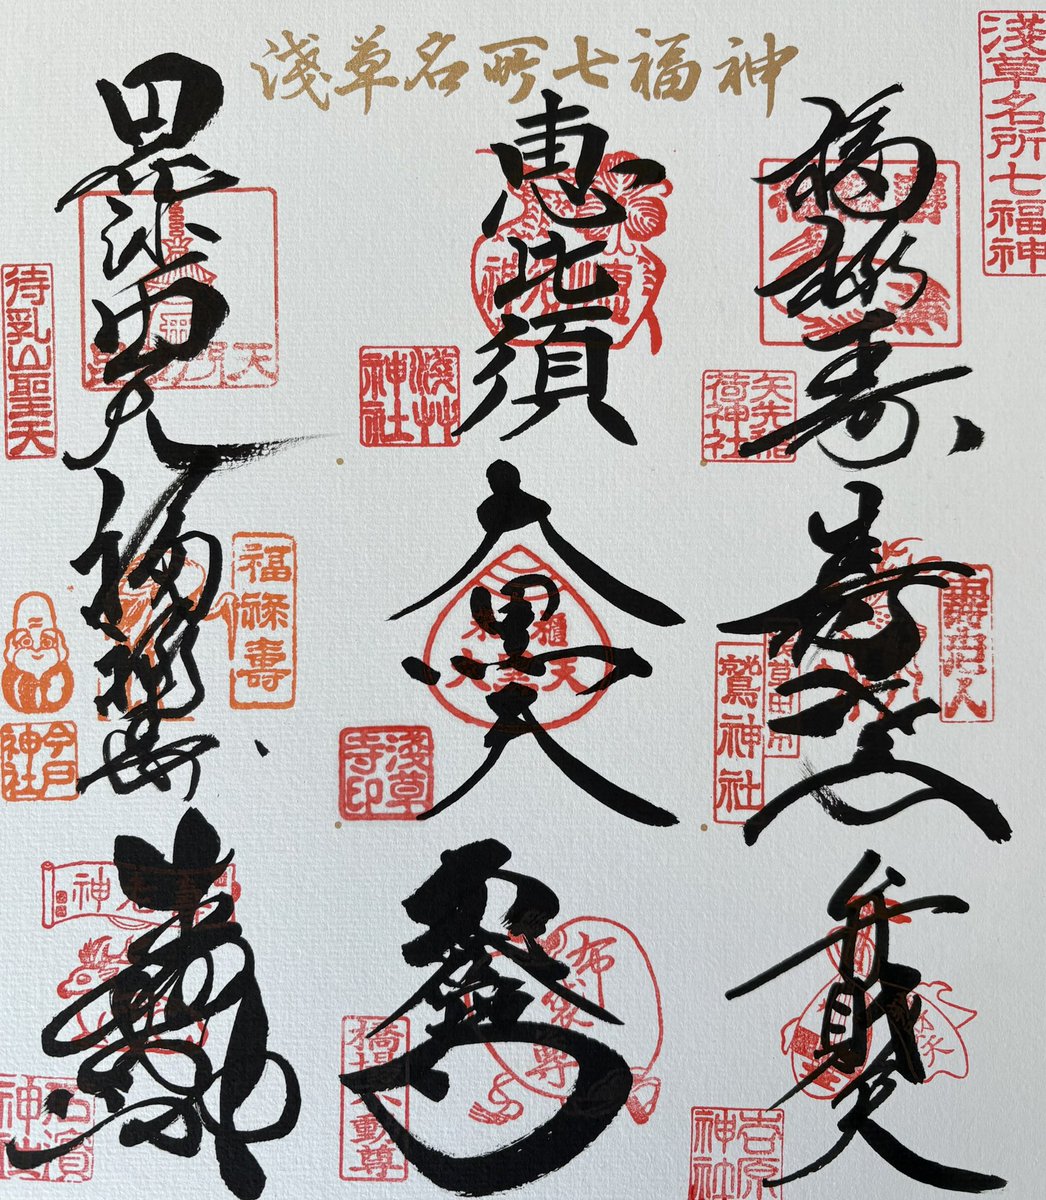 淺草名所七福神
淺草名所七福神
福禄寿
矢先稲荷神社
恵比須
淺草神社
毘沙門天
待乳山聖天
壽老人
鷲神社
大黒天
淺草寺印
福禄寿
福禄壽
今戸神社
弁財天
吉原神社
布袋尊
橋場不動尊
石濱神社